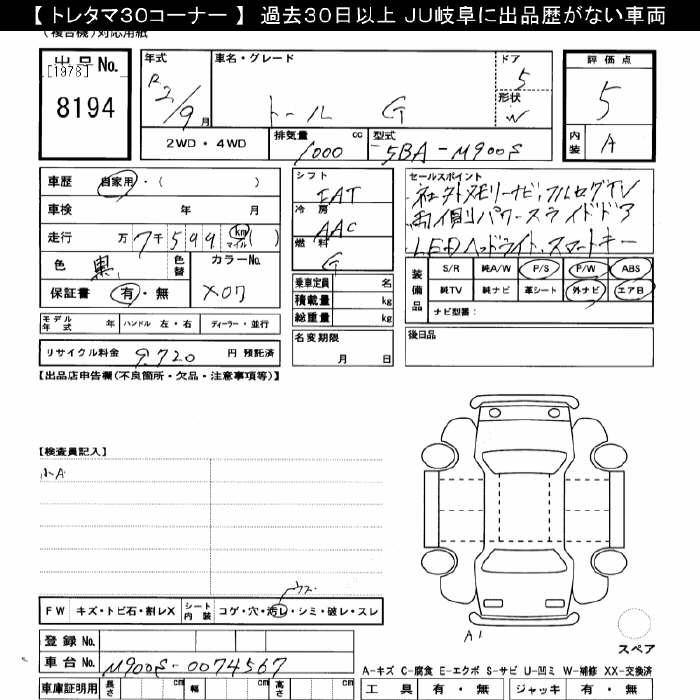 【 トレタマ30コーナー 】 過去30日以上 JU岐阜に出品歴がない車両
(複合機)対応用紙
出品No.
[1978]
8194
年式
R2/9月
車名・グレード
トール G
ドア
5
形状
W
評価点
5
内装
A
2WD・4WD
排気量 cc
1000
型式
5BA-M900S
車歴 自家用・( )
車検 年 月
走行 万7千599 km マイル ( )
色 黒
色替
カラーNo.
X07
保証書 有・無
シフト
IAT
冷房
AAC
燃料
G
乗車定員 名
積載量 kg
総重量 kg
セールスポイント
社外メモリーナビ、フルセグTV
両側パワースライドドア
LEDヘッドライト、スマートキー
装備品
S/R 純A/W P/S P/W ABS
純TV 純ナビ 革シート 外ナビ エアB
ナビ型番:
モデル年式 年 ハンドル 左・右 ディーラー・並行
リサイクル料金 9,720 円 預託済
名変期限
月 日
後日品
【出品店申告欄(不良箇所・欠品・注意事項等)】
【検査員記入】
小A
ウス
FW キズ・トビ石・割レX シート内装 コゲ・穴・汚レ・シミ・破レ・スレ
A1
スペア
登録 No.
車台 No. M900S-0074567
車庫証明用 長さ cm 幅 cm 高さ cm
A-キズ C-腐食 E-エクボ S-サビ U-凹ミ W-補修 XX-交換済
工具 有・無 ジャッキ 有・無